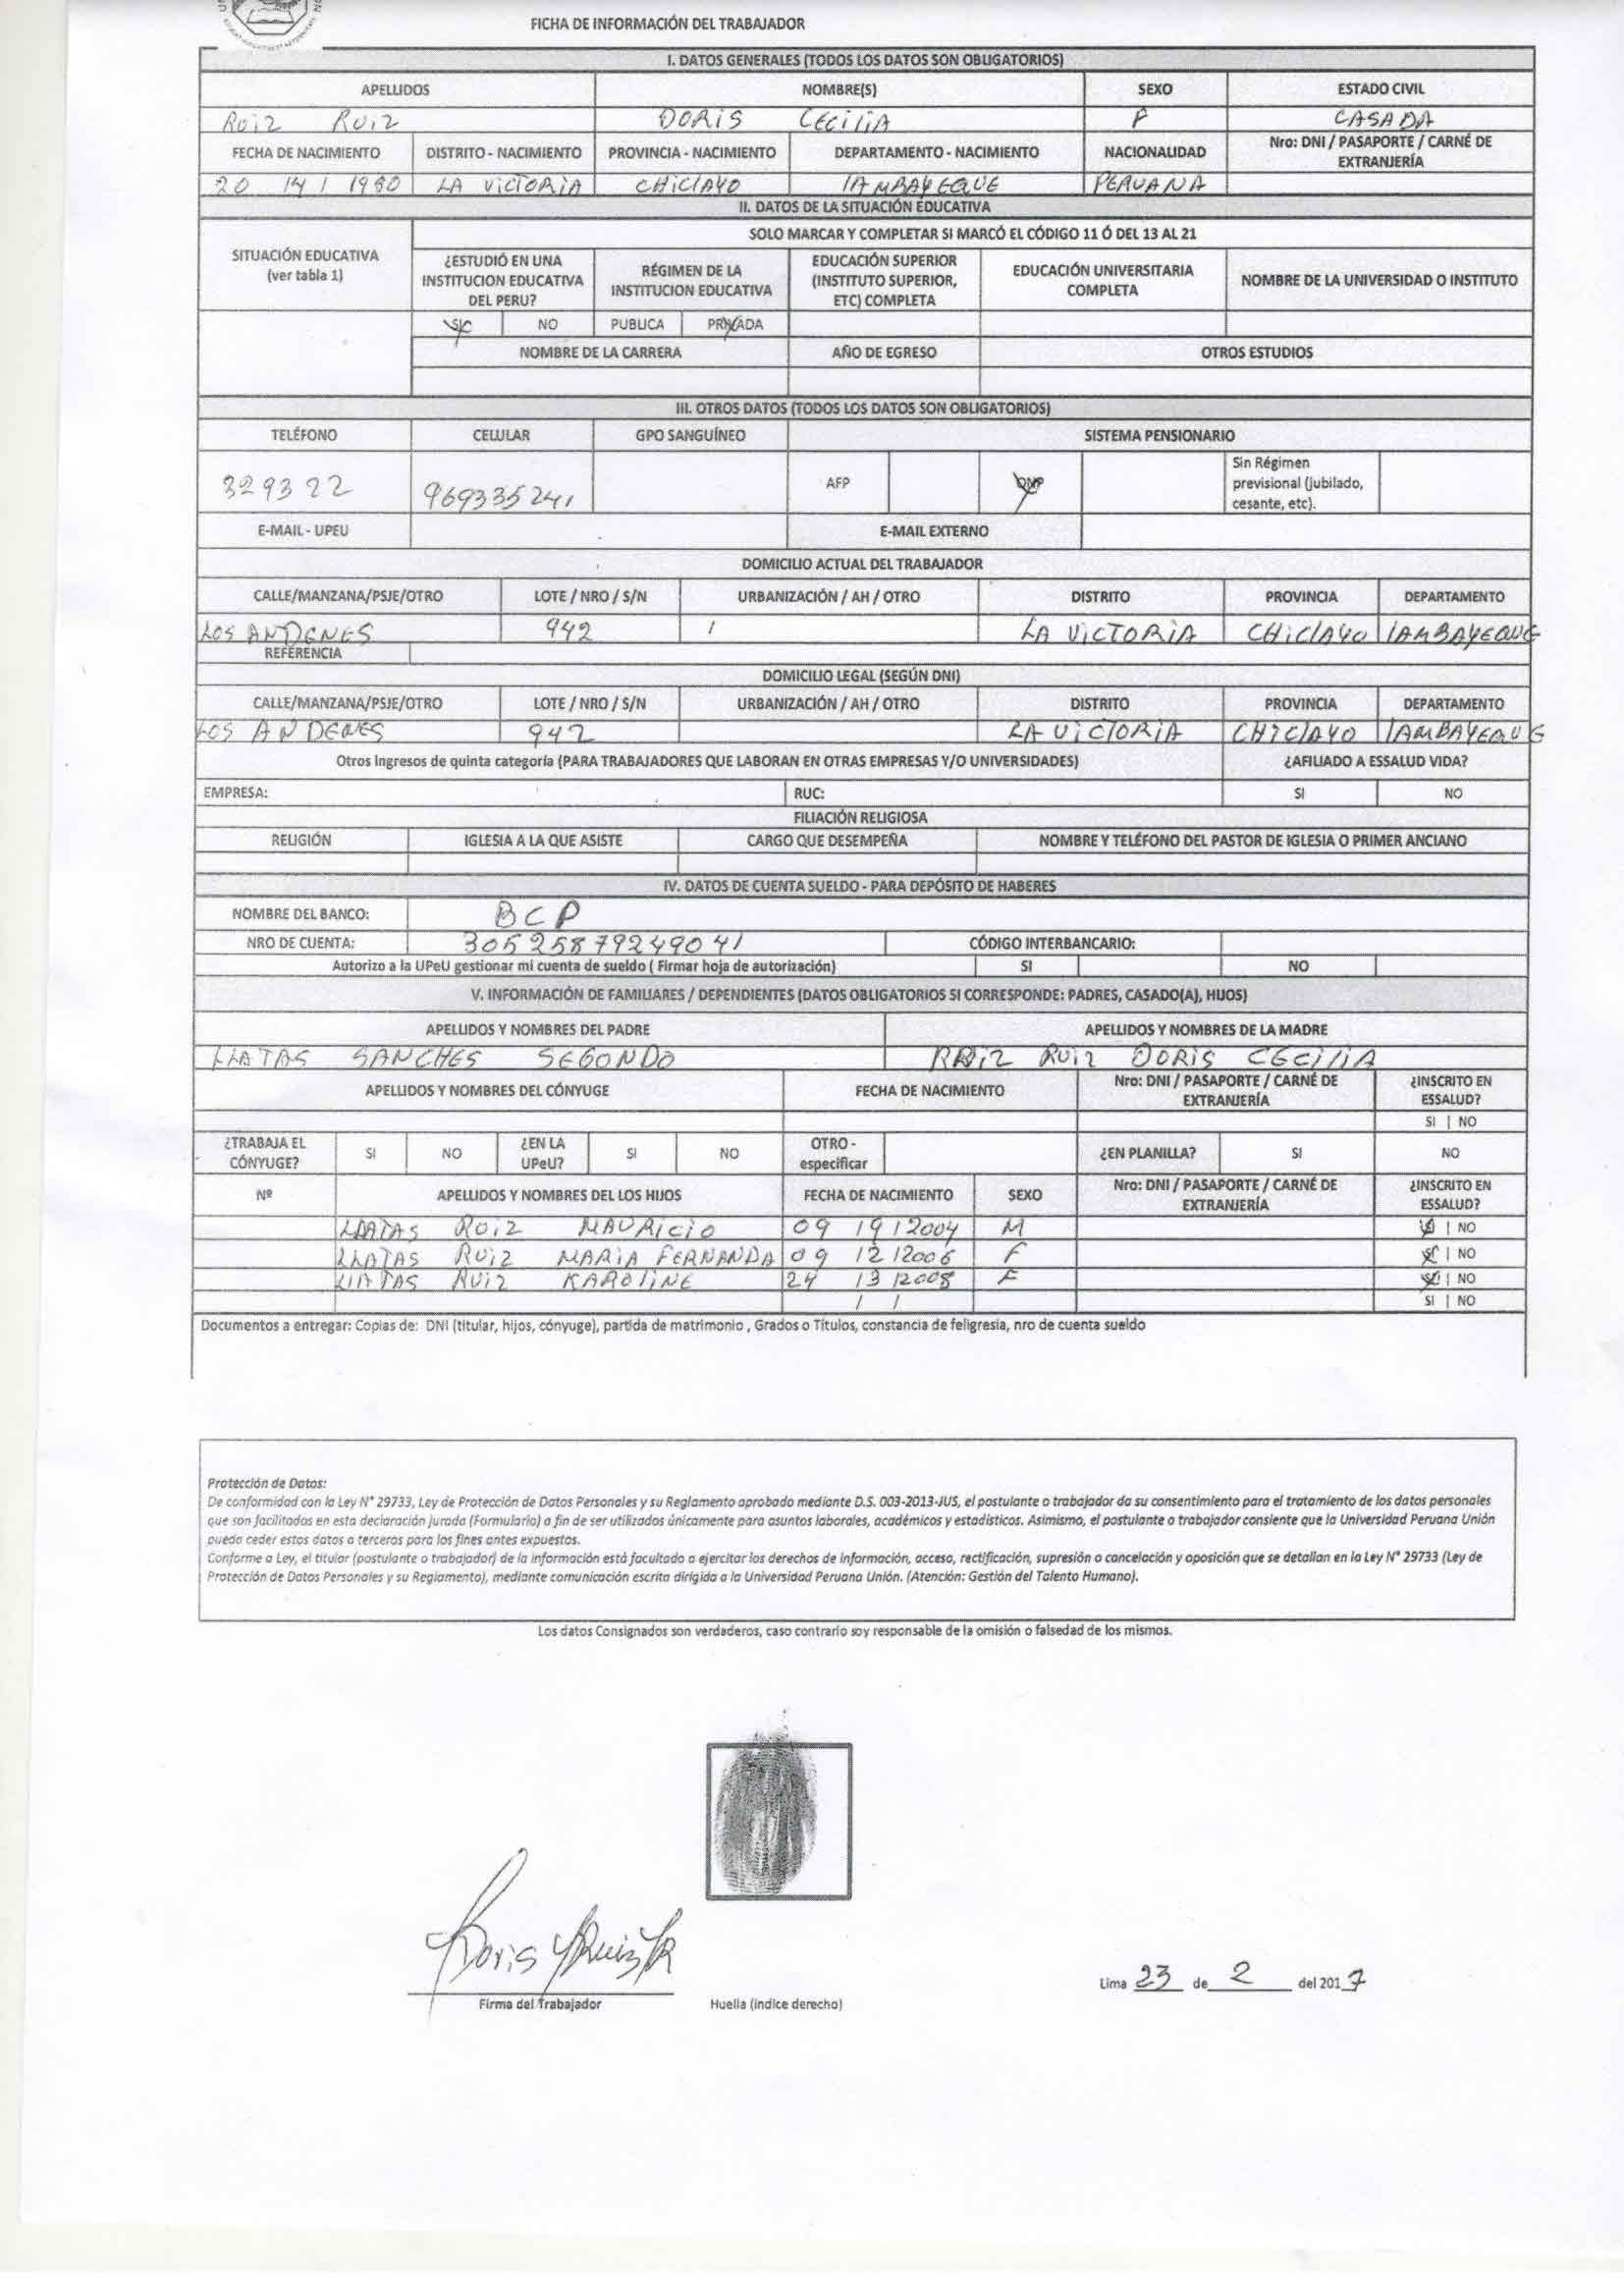 FICHA DE INFORMACIÓN DEL TRABAJADOR
I. DATOS GENERALES (TODOS LOS DATOS SON OBLIGATORIOS)
APELLIDOS NOMBRE(S) SEXO ESTADO CIVIL
RUIZ RUIZ DORIS CECILIA F CASADA
FECHA DE NACIMIENTO DISTRITO - NACIMIENTO PROVINCIA - NACIMIENTO DEPARTAMENTO - NACIMIENTO NACIONALIDAD Nro: DNI / PASAPORTE / CARNÉ DE EXTRANJERÍA
20 / 4 / 1980 LA VICTORIA CHICLAYO LAMBAYEQUE PERUANA
II. DATOS DE LA SITUACIÓN EDUCATIVA
SITUACIÓN EDUCATIVA (ver tabla 1)
SOLO MARCAR Y COMPLETAR SI MARCÓ EL CÓDIGO 11 Ó DEL 13 AL 21
¿ESTUDIÓ EN UNA INSTITUCION EDUCATIVA DEL PERU? RÉGIMEN DE LA INSTITUCION EDUCATIVA EDUCACIÓN SUPERIOR (INSTITUTO SUPERIOR, ETC) COMPLETA EDUCACIÓN UNIVERSITARIA COMPLETA NOMBRE DE LA UNIVERSIDAD O INSTITUTO
SI NO PUBLICA PRIVADA
NOMBRE DE LA CARRERA AÑO DE EGRESO OTROS ESTUDIOS
III. OTROS DATOS (TODOS LOS DATOS SON OBLIGATORIOS)
TELÉFONO CELULAR GPO SANGUÍNEO SISTEMA PENSIONARIO
329322 969335241 AFP ONP Sin Régimen previsional (jubilado, cesante, etc).
E-MAIL - UPEU E-MAIL EXTERNO
DOMICILIO ACTUAL DEL TRABAJADOR
CALLE/MANZANA/PSJE/OTRO LOTE / NRO / S/N URBANIZACIÓN / AH / OTRO DISTRITO PROVINCIA DEPARTAMENTO
LOS ANDENES 942 / LA VICTORIA CHICLAYO LAMBAYEQUE
REFERENCIA
DOMICILIO LEGAL (SEGÚN DNI)
CALLE/MANZANA/PSJE/OTRO LOTE / NRO / S/N URBANIZACIÓN / AH / OTRO DISTRITO PROVINCIA DEPARTAMENTO
LOS ANDENES 942 LA VICTORIA CHICLAYO LAMBAYEQUE
Otros Ingresos de quinta categoría (PARA TRABAJADORES QUE LABORAN EN OTRAS EMPRESAS Y/O UNIVERSIDADES) ¿AFILIADO A ESSALUD VIDA?
EMPRESA: RUC: SI NO
FILIACIÓN RELIGIOSA
RELIGIÓN IGLESIA A LA QUE ASISTE CARGO QUE DESEMPEÑA NOMBRE Y TELÉFONO DEL PASTOR DE IGLESIA O PRIMER ANCIANO
IV. DATOS DE CUENTA SUELDO - PARA DEPÓSITO DE HABERES
NOMBRE DEL BANCO: BCP
NRO DE CUENTA: 30525879249041 CÓDIGO INTERBANCARIO:
Autorizo a la UPeU gestionar mi cuenta de sueldo ( Firmar hoja de autorización) SI NO
V. INFORMACIÓN DE FAMILIARES / DEPENDIENTES (DATOS OBLIGATORIOS SI CORRESPONDE: PADRES, CASADO(A), HIJOS)
APELLIDOS Y NOMBRES DEL PADRE APELLIDOS Y NOMBRES DE LA MADRE
LLATAS SANCHES SEGONDO RUIZ RUIZ DORIS CECILIA
APELLIDOS Y NOMBRES DEL CÓNYUGE FECHA DE NACIMIENTO Nro: DNI / PASAPORTE / CARNÉ DE EXTRANJERÍA ¿INSCRITO EN ESSALUD?
SI | NO
¿TRABAJA EL CÓNYUGE? SI NO ¿EN LA UPeU? SI NO OTRO - especificar ¿EN PLANILLA? SI NO
Nº APELLIDOS Y NOMBRES DEL LOS HIJOS FECHA DE NACIMIENTO SEXO Nro: DNI / PASAPORTE / CARNÉ DE EXTRANJERÍA ¿INSCRITO EN ESSALUD?
LLATAS RUIZ MAURICIO 09 / 9 / 2004 M SI | NO
LLATAS RUIZ MARIA FERNANDA 09 / 2 / 2006 F SI | NO
LLATAS RUIZ KAROLINE 24 / 3 / 2008 F SI | NO
/ / SI | NO
Documentos a entregar: Copias de: DNI (titular, hijos, cónyuge), partida de matrimonio , Grados o Títulos, constancia de feligresía, nro de cuenta sueldo
Protección de Datos:
De conformidad con la Ley N° 29733, Ley de Protección de Datos Personales y su Reglamento aprobado mediante D.S. 003-2013-JUS, el postulante o trabajador da su consentimiento para el tratamiento de los datos personales
que son facilitados en esta declaración jurada (Formulario) a fin de ser utilizados únicamente para asuntos laborales, académicos y estadísticos. Asimismo, el postulante o trabajador consiente que la Universidad Peruana Unión
pueda ceder estos datos a terceros para los fines antes expuestos.
Conforme a Ley, el titular (postulante o trabajador) de la información está facultado a ejercitar los derechos de información, acceso, rectificación, supresión o cancelación y oposición que se detallan en la Ley N° 29733 (Ley de
Protección de Datos Personales y su Reglamento), mediante comunicación escrita dirigida a la Universidad Peruana Unión. (Atención: Gestión del Talento Humano).
Los datos Consignados son verdaderos, caso contrario soy responsable de la omisión o falsedad de los mismos.
Doris Ruiz R
Lima 23 de 2 del 2017
Firma del Trabajador Huella (índice derecho)